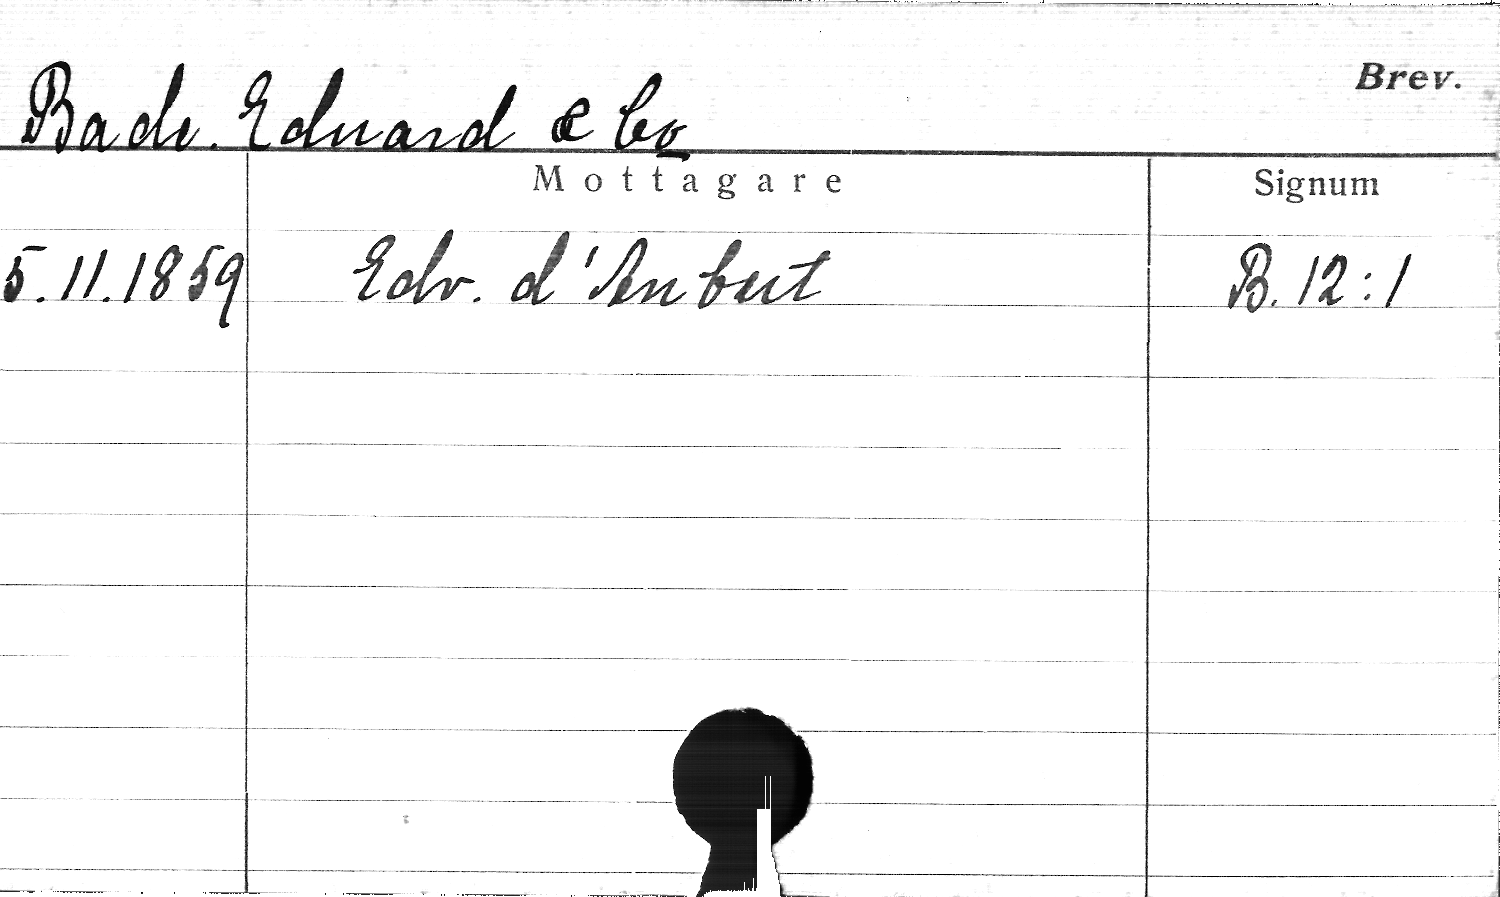 Brev.
Bade. Eduard & Co
Mottagare Signum
5.11.1859 Edv. d'Aubert B. 12:1